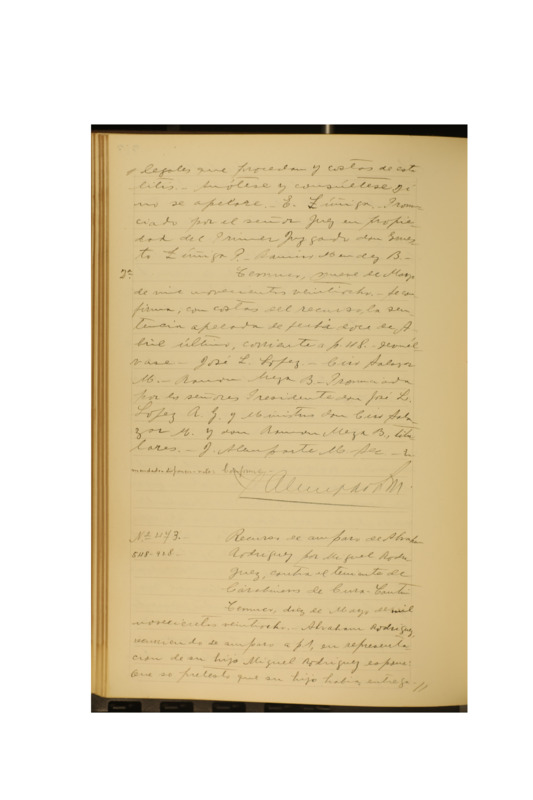 legales que procedan y costas de esta
litis. - Anótese y consúltese si
no se apelare. - E. Zúñiga. Pronun-
ciado por el señor Juez en propie-
dad del Primer Juzgado don Ernes-
to Zúñiga P. - Ramón Mendez B. -
2a. Temuco, nueve de Marzo
de mil novecientos veintiocho. - Se con-
firma, con costas del recurso la sen-
tencia apelada de fecha doce de A-
bril último, corriente a f. 48. - Devuél-
vase. - José L. Lopez. - Ciro Salazar
M. - Ramon Meza B. - Pronunciada
por los señores Presidente don José L.
Lopez R. y Ministros don Ciro Sala-
zar M. y don Ramon Meza B., titu-
lares. - J. M. Sec. -
Nº 1173. - Recurso de amparo de Abraham
Rodriguez por Miguel Rodri-
guez, contra el teniente de
Carabineros de
Temuco, diez de Marzo de mil
novecientos veintiocho. - Abraham Rodriguez,
recurriendo de amparo a f 1, en representa-
cion de su hijo Miguel Rodriguez expone:
Que so pretesto que su hijo habia entrega-//